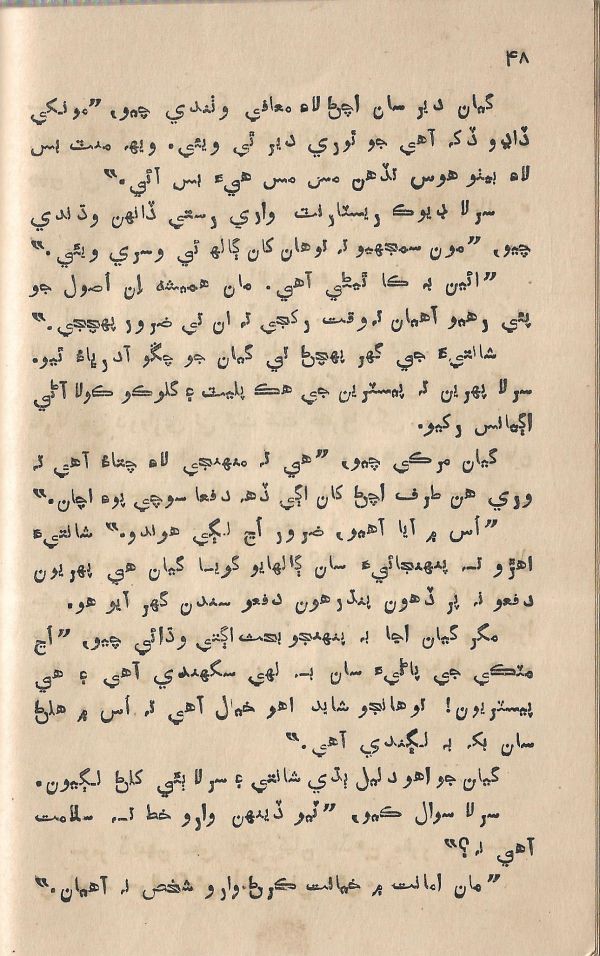 ۴۸
گيان دير سان اچڻ لاءِ معافي وٺندي چيو، ”مونکي
ڏاڍو ڏک آهي جو ٿوري دير ٿي ويئي. ويھ منٽ بس
لاءِ بيٺو هوس تڏهن مس مس هيءَ بس آئي.“
سرلا ڊيوڪ ريسٽارنٽ واري رستي ڏانهن وڌندي
چيو، ”مون سمجهيو تہ توهان کان ڳالهہ ئي وسري ويئي.“
”ائين بہ ڪا ٿيڻي آهي. مان هميشہ اِن اُصول جو
پٿي رهيو آهيان تہ وقت رکجي تہ ان تي ضرور پهچجي.“
شانتيءَ جي گهر پهچڻ تي گيان جو چڱو آدرڀاءُ ٿيو.
سرلا پهرين تہ پيسٽرين جي هڪ پليٽ ۽ گلوڪو ڪولا آڻي
اڳيانس رکيو.
گيان مرڪي چيو، ”هي تہ منهنجي لاءِ چتاءُ آهي تہ
وري هن طرف اچڻ کان اڳي ڏهہ دفعا سوچي پوءِ اچان.“
”اُس ۾ آيا آهيو، ضرور اُڃ لڳي هوندو.“ شانتيءَ
اهڙو تہ پنهنجائيءَ سان ڳالهايو گويا گيان هي پهريون
دفعو نہ پر ڏهون پنڌرهون دفعو سندن گهر آيو هو.
مگر گيان اڃا بہ پنهنجو بحث اڳتي وڌائي چيو، ”اُڃ
مٽڪي جي پاڻيءَ سان بہ لهي سگهندي آهي ۽ هي
پيسٽريون! توهانجو شايد اهو خيال آهي تہ اُس ۾ هلڻ
سان بک بہ لڳندي آهي.“
گيان جو اهو دليل ٻڌي شانتي ۽ سرلا ٻئي کلڻ لڳيون.
سرلا سوال ڪيو، ”ٽيو ڏينهن وارو خط تہ سلامت
آهي نہ؟“
”مان امانت ۾ خيانت ڪرڻ وارو شخص نہ آهيان.“